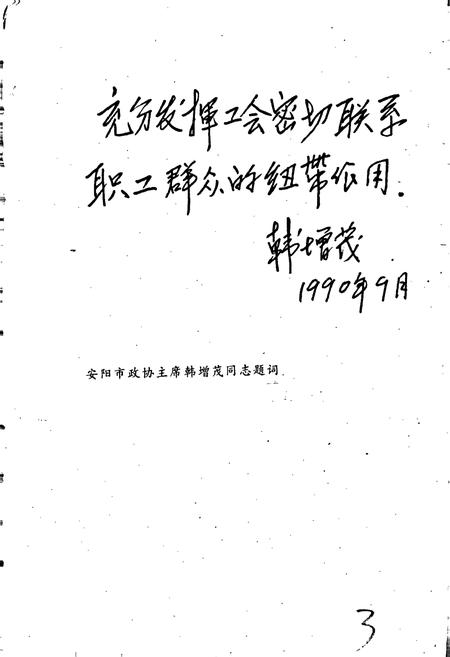 充分发挥工会密切联系
职工群众的纽带作用.
韩增茂
1990年9月
安阳市政协主席韩增茂同志题词
3